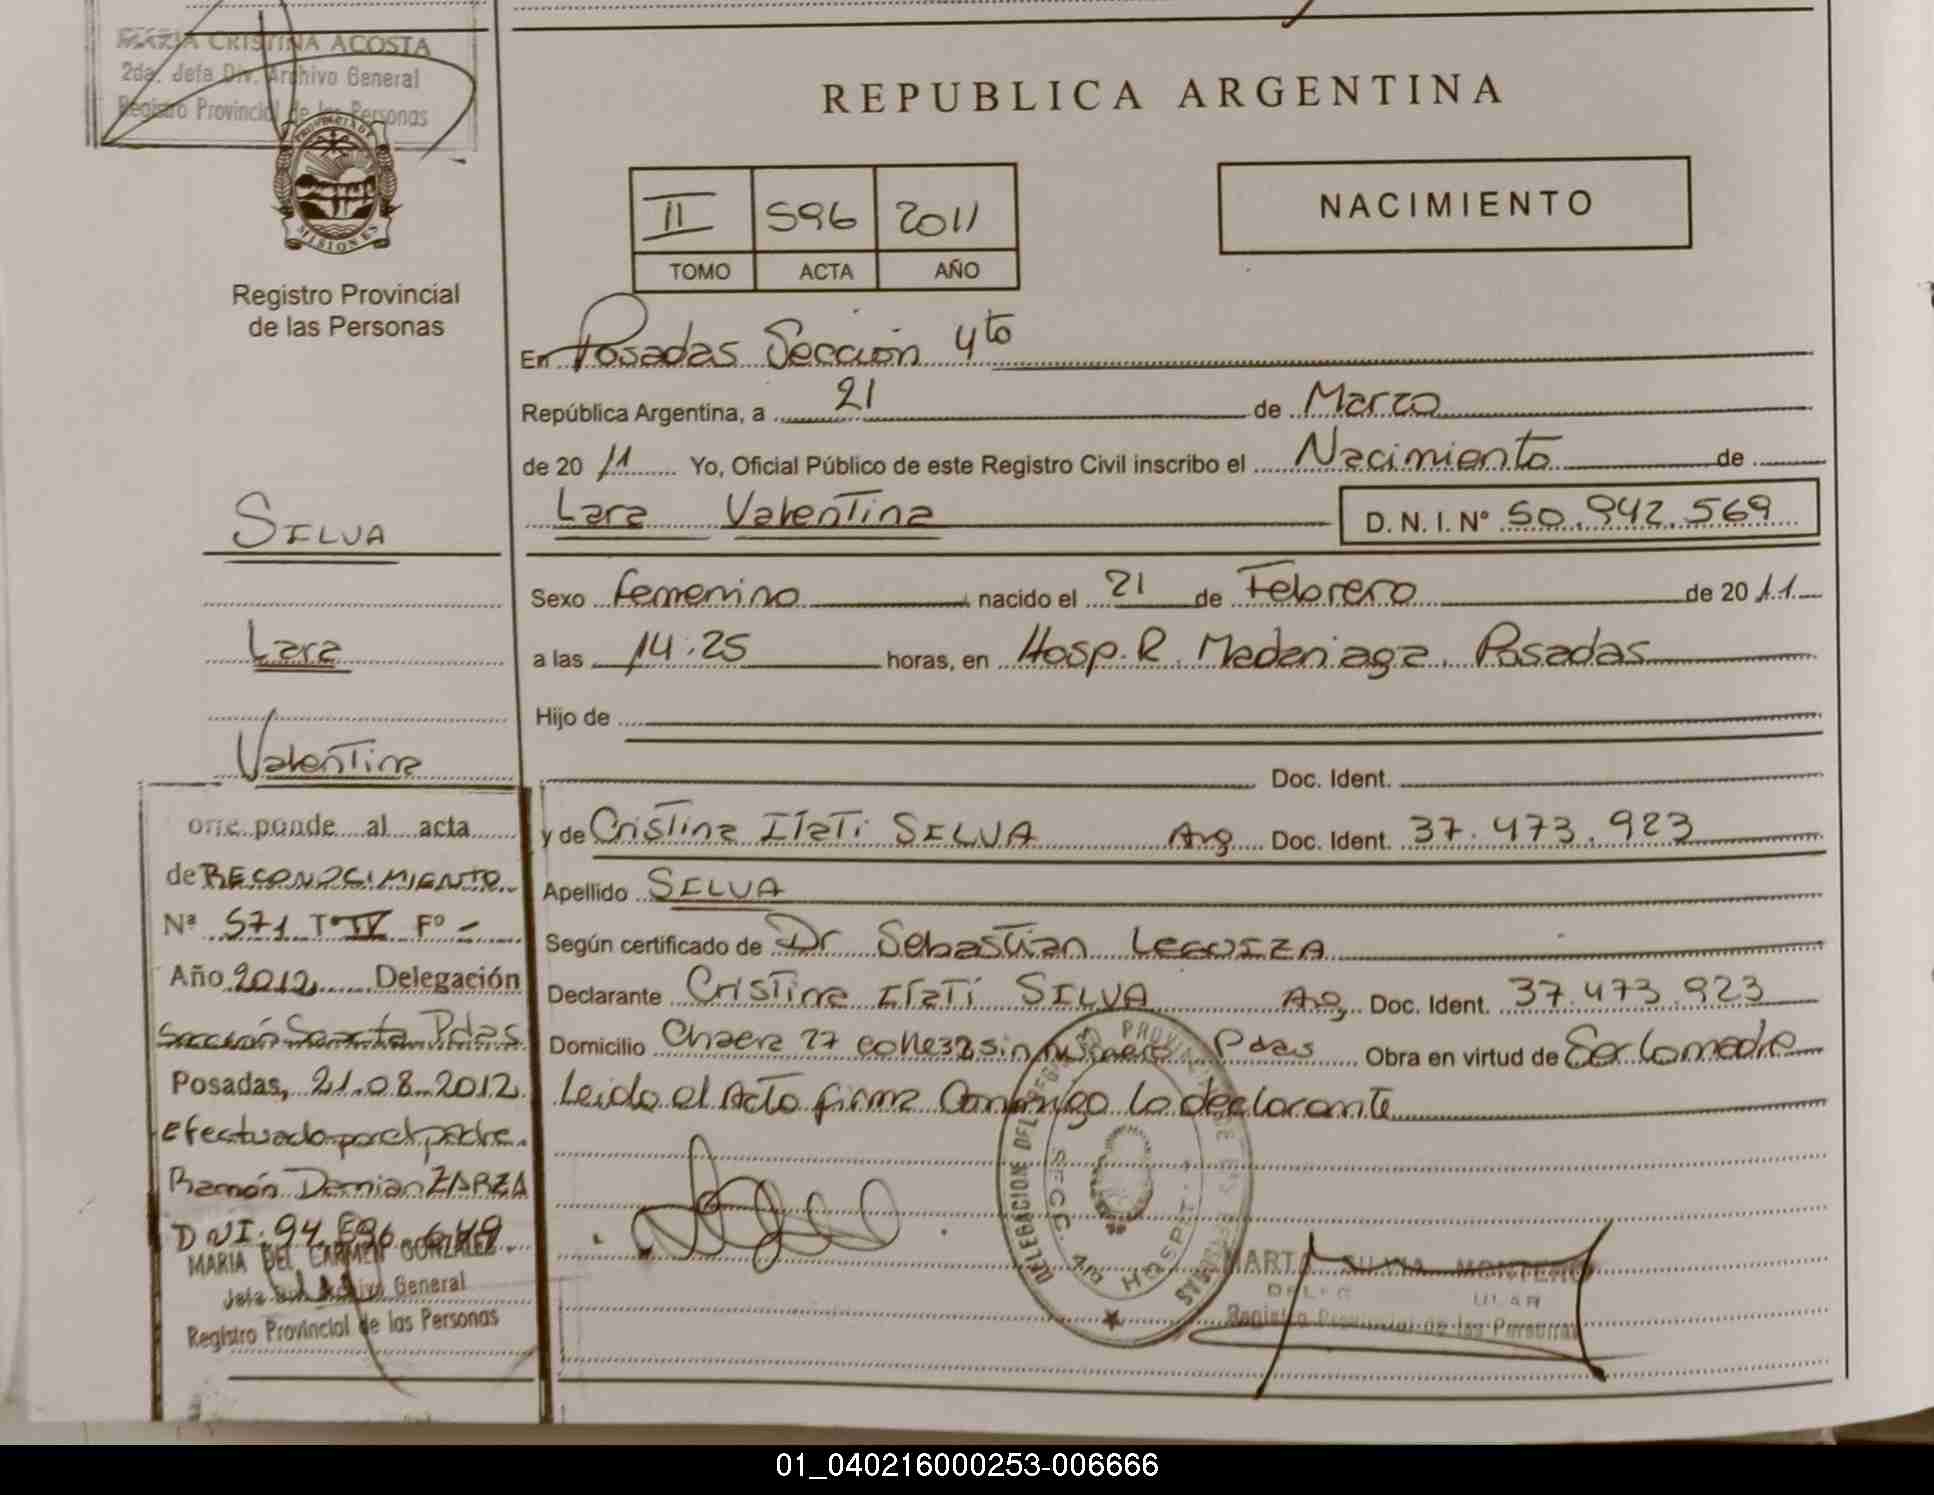 MARIA CRISTINA ACOSTA
2da. Jefa Div. Archivo General
Registro Provincial de las Personas
PROVINCIA DE
MISIONES
Registro Provincial
de las Personas
SILVA
Lara
Valentina
orresponde al acta
de RECONOCIMIENTO
Nª 571 Tº IV Fº -
Año 2012 Delegación
Sección Sexta Pdas
Posadas, 21.08.2012
efectuado por el padre
Ramón Damian ZARZA
DNI: 94.
MARIA DEL CARMEN GONZALEZ
Jefa Div. Archivo General
Registro Provincial de las Personas
REPUBLICA ARGENTINA
II 596 2011
TOMO ACTA AÑO
NACIMIENTO
En Posadas Sección 4to
República Argentina, a 21 de Marzo
de 20 11 Yo, Oficial Público de este Registro Civil inscribo el Nacimiento de
Lara Valentina D. N. I. Nº 50.942.569
Sexo femenino nacido el 21 de Febrero de 20 11
a las 14:25 horas, en Hosp. R. Madariaga. Posadas
Hijo de
Doc. Ident.
y de Cristina Itatí SILVA Arg Doc. Ident. 37.473.923
Apellido SILVA
Según certificado de Dr Sebastian
Declarante Cristina Itatí SILVA Arg. Doc. Ident. 37.473.923
Domicilio Chacra 27 sin número Pdas Obra en virtud de Ser la madre
Leido el Acto firma Conmigo la declarante
DELEGACION DEL REGISTRO PROVINCIAL DE LAS PERSONAS
SECC. 4ta HOSPIT.
MARTA SILVIA MONTERO
Registro Provincial de las Personas
01_040216000253-006666